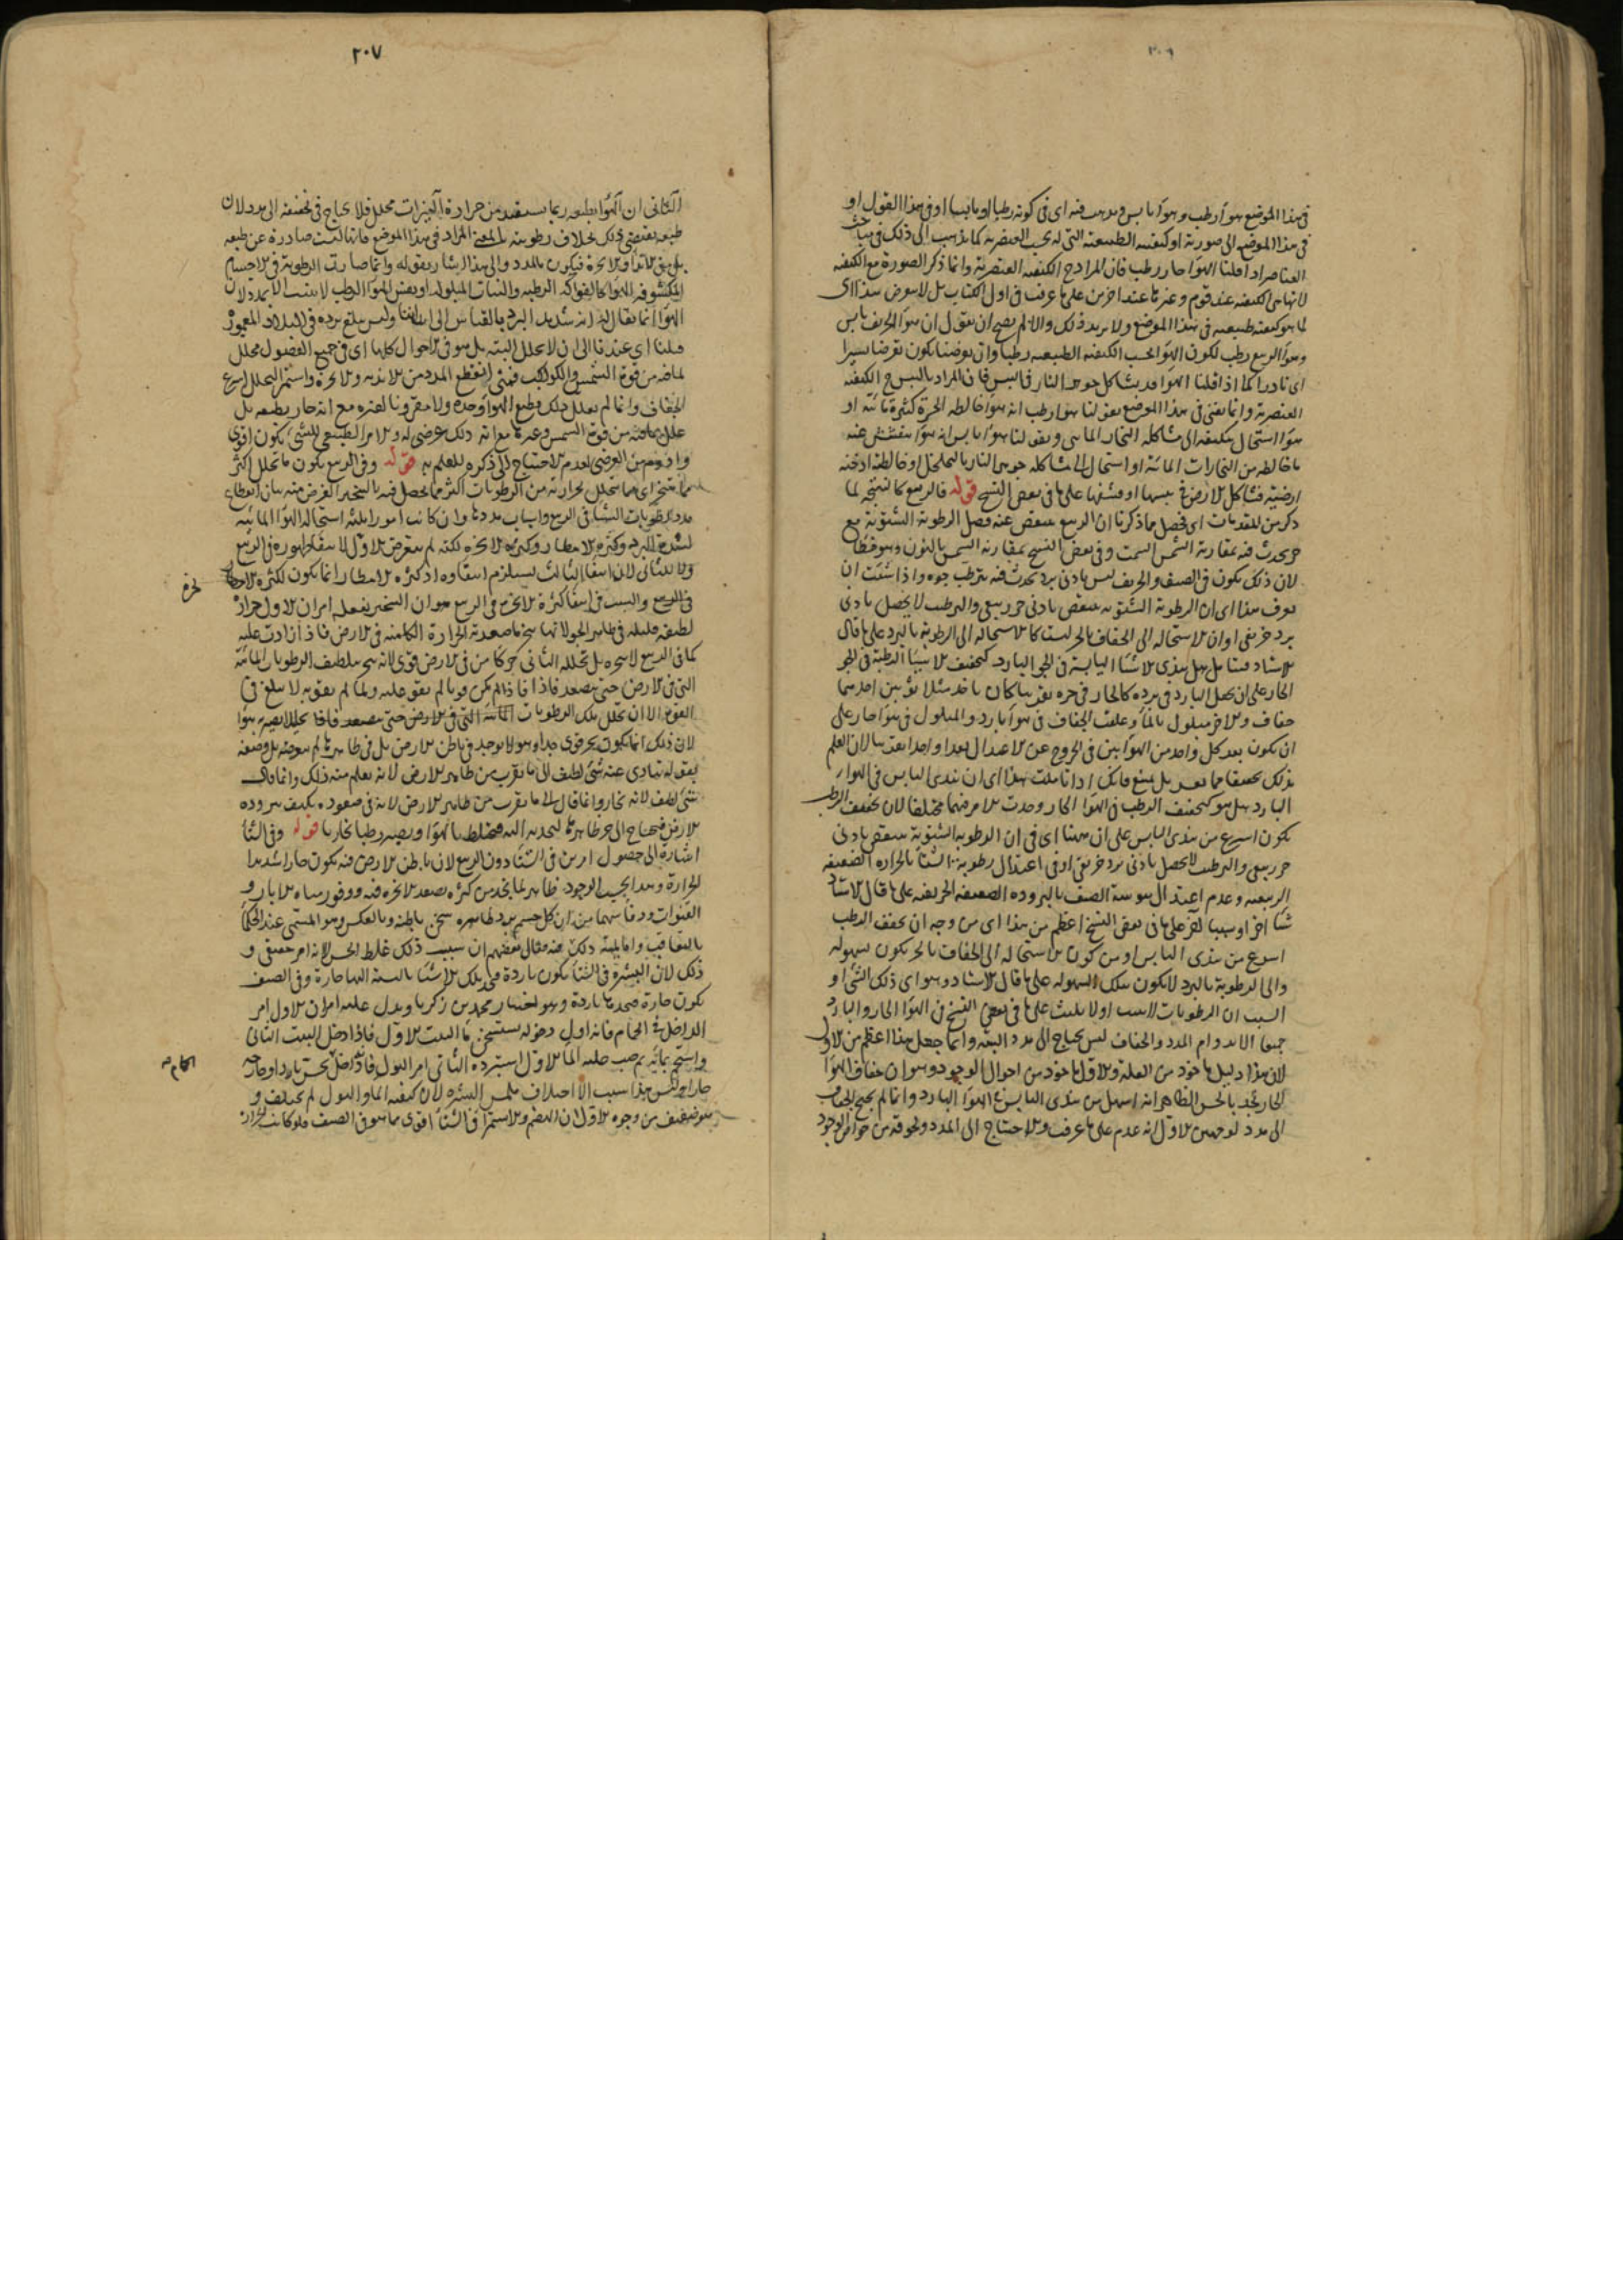 ٢٠٦
في هذا الموضع هواء رطب وهواء يابس فيه اي في كونه رطبا او يابسا او في هذا القول او
في هذا الموضع الى صورته او كيفيته الطبيعية التي له بحسب العنصرية كما يذهب الى ذلك في مباحث
العناصر اذا قلنا الهواء حار رطب فان المراد ح الكيفية العنصرية وانما ذكر الصورة مع الكيفية
لانها هي الكيفية عند قوم وغيرها عند اخرين على ما عرفت في اول الكتاب بل لا يعرض هذا اي
لما هو كيفية طبيعية في هذا الموضع ولا يريد ذلك والا لم يصح ان يقول ان هواء الخريف يابس
وهواء الربيع رطب لكون الهواء بحسب الكيفية الطبيعية رطبا وان تعرضنا يكون تعرضا يسيرا
اي نادرا كما اذا قلنا الهواء قد يشاكل جوهر النار في اليبس فان المراد باليبس ح الكيفية
العنصرية وانما يعنى في هذا الموضع بقولنا هواء رطب انه هواء خالطه ابخرة كثيرة مائية او
هواء استحال بكيفيته الى مشاكلة البخار المائي وبقولنا هواء يابس انه هواء يتفشش عنه
ما خالطه من البخارات المائية او استحال الى مشاكلة جوهر النار بالتخلخل او خالطته ادخنة
ارضية فشاكل الارض في يبسها او فشفها على ما في بعض النسخ قوله فالربيع كالنتيجة لما
ذكر من المقدمات اي فحصل مما ذكرنا ان الربيع ينتقص عنه فضل الرطوبة الشتوية مع
حر يحدث فيه بمقاربة الشمس السمت وفي بعض النسخ بمقارنة الشمس بالنون وهو خطأ
لان ذلك يكون في الصيف والخريف ليس بادنى برد يحدث فيه يترطب جوه واذا شئت ان
تعرف هذا اي ان الرطوبة الشتوية تنتقص بادنى حر ربيعي والترطب لا يحصل بادنى
برد خريفي او ان الاستحالة الى الجفاف بالحر ليست كالاستحالة الى الرطوبة بالبرد على ما قال
الاستاد فتأمل هل يندى الاشياء اليابسة في الجو البارد كتجفيف الاشياء الرطبة في الجو
الحار على ان يجعل البارد في برده كالحار في حره تقريبا كان ياخذ مثلا ثوبين احدهما
جاف والاخر مبلول بالماء وعلقت الجاف في هواء بارد والمبلول في هواء حار على
ان يكون بعد كل واحد من الهواءين في الخروج عن الاعتدال بعدا واحدا تقريبا لان العلم
بذلك تحقيقا مما يعسر بل يمتنع فانك اذا تأملت هذا اي ان تندى اليابس في الهواء
البارد هل هو كتجفيف الرطب في الهواء الحار وجدت الامر فيهما مختلفا لان تجفيف الرطب
يكون اسرع من تندى اليابس على ان ههنا اي في ان الرطوبة الشتوية تنتقص بادنى
حر ربيعي والترطب لا يحصل بادنى برد خريفي او في اعتدال رطوبة الشتاء بالحرارة الضعيفة
الربيعية وعدم اعتدال يبوسة الصيف بالبرودة الضعيفة الخريفية على ما قال الاستاد
شيئا اخر او سببا اخر على ما في بعض النسخ اعظم من هذا اي من وجه ان تجفف الرطب
اسرع من تندى اليابس او من كون الاستحالة الى الجفاف بالحر يكون بسهولة
والى الرطوبة بالبرد لا يكون بتلك السهولة على ما قال الاستاد وهو اي ذلك الشيء او
السبب ان الرطوبات لا تثبت او لا يلبث على ما في بعض النسخ في الهواء الحار والبارد
جميعا الا بدوام المدد والجفاف ليس يحتاج الى مدد البتة وانما جعل هذا اعظم من الاول
لان هذا دليل ماخوذ من العلة والاول ماخوذ من احوال الوجود وهو ان جفاف الهواء
الحار نجد بالحس الظاهر انه اسهل من تندى اليابس في الهواء البارد وانما لم يحتج الجفاف
الى مدد لوجهين الاول انه عدم على ما عرفت والاحتياج الى المدد ولحوقه من خواص الوجود
٢٠٧
الثاني ان الهواء بطبعه ربما يستفيد من حرارة النيرات محلل فلا يحتاج في تجفيفه الى مدد لان
طبعه يقتضي ذلك بخلاف رطوبته بالمعنى المراد في هذا الموضع فانها ليست صادرة عن طبعه
بل من الانداء والابخرة فيكون بالمدد والى هذا اشار بقوله وانما صارت الرطوبة في الاجسام
المكشوفة للهواء كالفواكه الرطبة والنبات المبلولة او نفس الهواء الرطب لا تثبت الا بمدد لان
الهواء انما يقال له انه شديد البرد بالقياس الى ابداننا وليس يبلغ برده في البلاد المعمورة
قبلنا اي عندنا الى ان لا يحلل البتة بل هو في الاحوال كلها اي في جميع الفصول محلل
لما فيه من قوة الشمس والكواكب فمتى انقطع المدد من الاندية والابخرة واستمر التحلل اسرع
الجفاف وانما لم يعلل ذلك بطبع الهواء وحده ولا مقرونا لغيره مع انه حار بطبعه بل
علل بما فيه من قوة الشمس وغيرها مع انه ذلك عرضي له والامر الطبيعي للشيء يكون اقوى
وادوم من العرضي لعدم الاحتياج الى ذكره للعلم به قوله وفي الربيع يكون ما يتحلل اكثر
مما يتبخر اي ما يتحلل بحرارته من الرطوبات اكثر مما يحصل فيه بالتبخير الغرض منه بيان انقطاع
مدد الرطوبات الشتائي في الربيع واسباب مددها وان كانت امورا ثلثة استحالة الهواء الى المائية
لشدة البرد وكثرة الامطار وكثرة الابخرة لكنه لم يتعرض الاول لانتفائه ظهوره في الربيع
ولا للثاني لان انتفاء الثالث يستلزم انتفاؤه اذ كثرة الامطار انما يكون لكثرة الابخرة
ابخرة
في الربيع والسبب في انتفاء كثرة الابخرة في الربيع هو ان التبخير يفعله امران الاول حرارة
لطيفة قليلة في ظاهر الجو لانها تبخر ما صعدته الحرارة الكامنة في الارض فاذا زادت عليه
كما في الربيع لا تبخره بل تحلله الثاني حر كامن في الارض قوي لانه يبخر بتلطيف الرطوبات المائية
التي في الارض حتى يصعد فاذا لم يكن قويا لم يقو عليه ولما لم يقو به لا يبلغ في
القوة الا ان يحلل تلك الرطوبات المائية التي في الارض حتى يصعد فاذا تحلل لا يصير هواء
لان ذلك انما يكون بحر قوي جدا وهو لا يوجد في باطن الارض بل في ظاهرها لم يتعرضه بل وصفه
بقوله يتادى عنه شيء لطيف الى ما يقرب من ظاهر الارض لانه يعلم منه ذلك وانما قال
شيء لطيف لانه بخار وانما قال الى ما يقرب من ظاهر الارض لانه في صعوده يكثف ببرودة
الارض فيحتاج الى حر ظاهرها لتجذبه اليه فيختلط بالهواء ويصير رطبا بخاريا قوله وفي الشتاء
اشارة الى حصول امرين في الشتاء دون الربيع لان باطن الارض فيه يكون حارا شديد
الحرارة وهذا بحسب الوجود ظاهر لما نجد من كثرة تصعد الابخرة فيه ووفور مياه الابار و
القنوات ودفائهما من ان كل جسم يبرد ظاهره سخن باطنه وبالعكس وهو المسمى عند الحكماء
بالتعاقب واما لمية ذلك ففيه مقال بعضهم ان سبب ذلك غلط الحس لا انه امر حقيقي و
ذلك لان البشرة في الشتاء يكون باردة فتجد تلك الاشياء بالنسبة اليها حارة وفي الصيف
يكون حارة فتجدها باردة وهو اختيار محمد بن زكريا ويدل عليه امران الاول امر
الداخل في الحمام فانه اول دخوله يستسخن ماء البيت الاول فاذا دخل البيت الثاني
واستحم بمائه ثم صب عليه الماء الاول استبرده الثاني امر البول فانه داخل
الحمام صح
حارا وليس هذا سبب الا اختلاف ملمس البشرة لان كيفية الماء والبول لم يختلف و
هو ضعيف من وجوه الاول ان الهضم والاستمراء في الشتاء اقوى مما هو في الصيف فلو كانت الحرارة